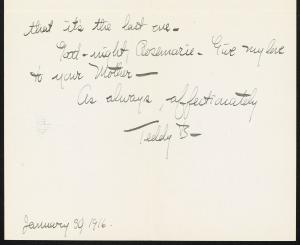 that it's the last one-
Good-night, Rosemarie- Give my love
to your Mother-
As always, affectionately
Teddy B-
January 30, 1916.